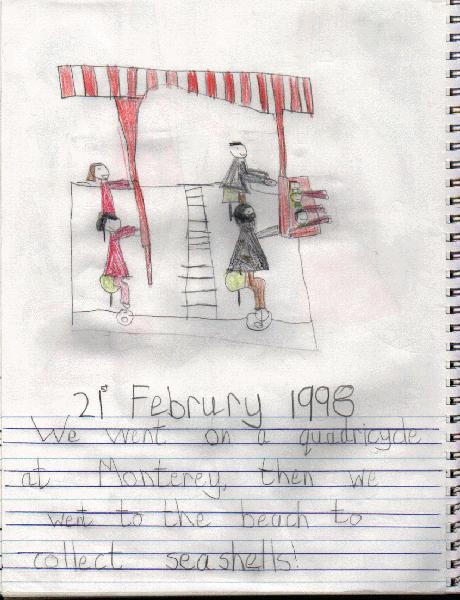 21st Februry 1998
We went on a quadricycle
at Monterey, then we
went to the beach to
collect seashells!